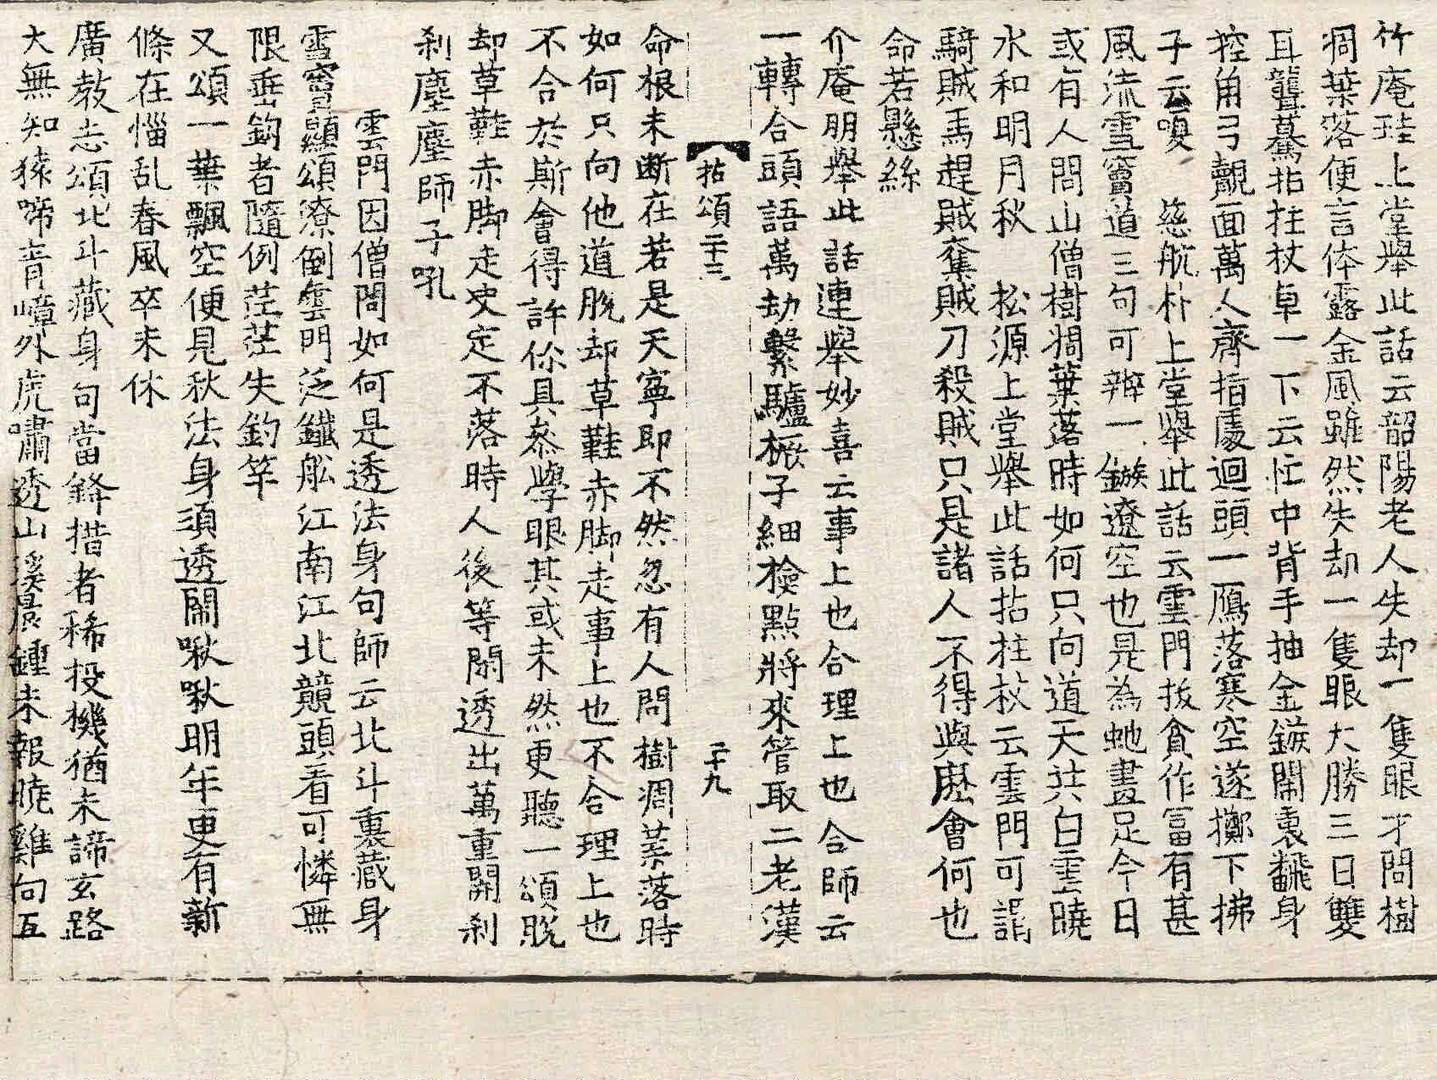 竹庵珪上堂舉此話云韶陽老人失却一隻眼才問樹
凋葉落便言体露金風雖然失却一隻眼大勝三日雙
耳聾驀拈拄杖卓一下云忙中背手抽金鏃閙裏飜身
控角弓覿面萬人齊指處迴頭一鴈落寒空遂擲下拂
子云嗄　慈航朴上堂舉此話云雲門拔貪作富有甚
風流雪竇道三句可辨一鏃遼空也是為虵畫足今日
或有人問山僧樹凋葉落時如何只向道天共白雲曉
水和明月秋　松源上堂舉此話拈拄杖云雲門可謂
騎賊馬趕賊奪賊刀殺賊只是諸人不得與麽會何也
命若懸絲
介庵朋舉此話連舉妙喜云事上也合理上也合師云
一轉合頭語萬劫繫驢橛子細檢點將來管取二老漢
拈頌二十三　二十九
命根未断在若是天寧即不然忽有人問樹凋葉落時
如何只向他道脫却草鞋赤脚走事上也不合理上也
不合於斯會得許伱具叅學眼其或未然更聽一頌脫
却草鞋赤脚走史定不落時人後等閑透出萬重關刹
刹塵塵師子吼
雲門因僧問如何是透法身句師云北斗裏藏身
雪竇顯頌潦倒雲門泛鐵舩江南江北競頭看可憐無
限垂鈎者隨例茫茫失釣竿
又頌一葉飄空便見秋法身須透閙啾啾明年更有新
條在惱乱春風卒未休
廣教志頌北斗藏身句當鋒措者稀投機猶未諦玄路
大無知猿啼青嶂外虎嘯透山溪晨鍾未報曉雞向五